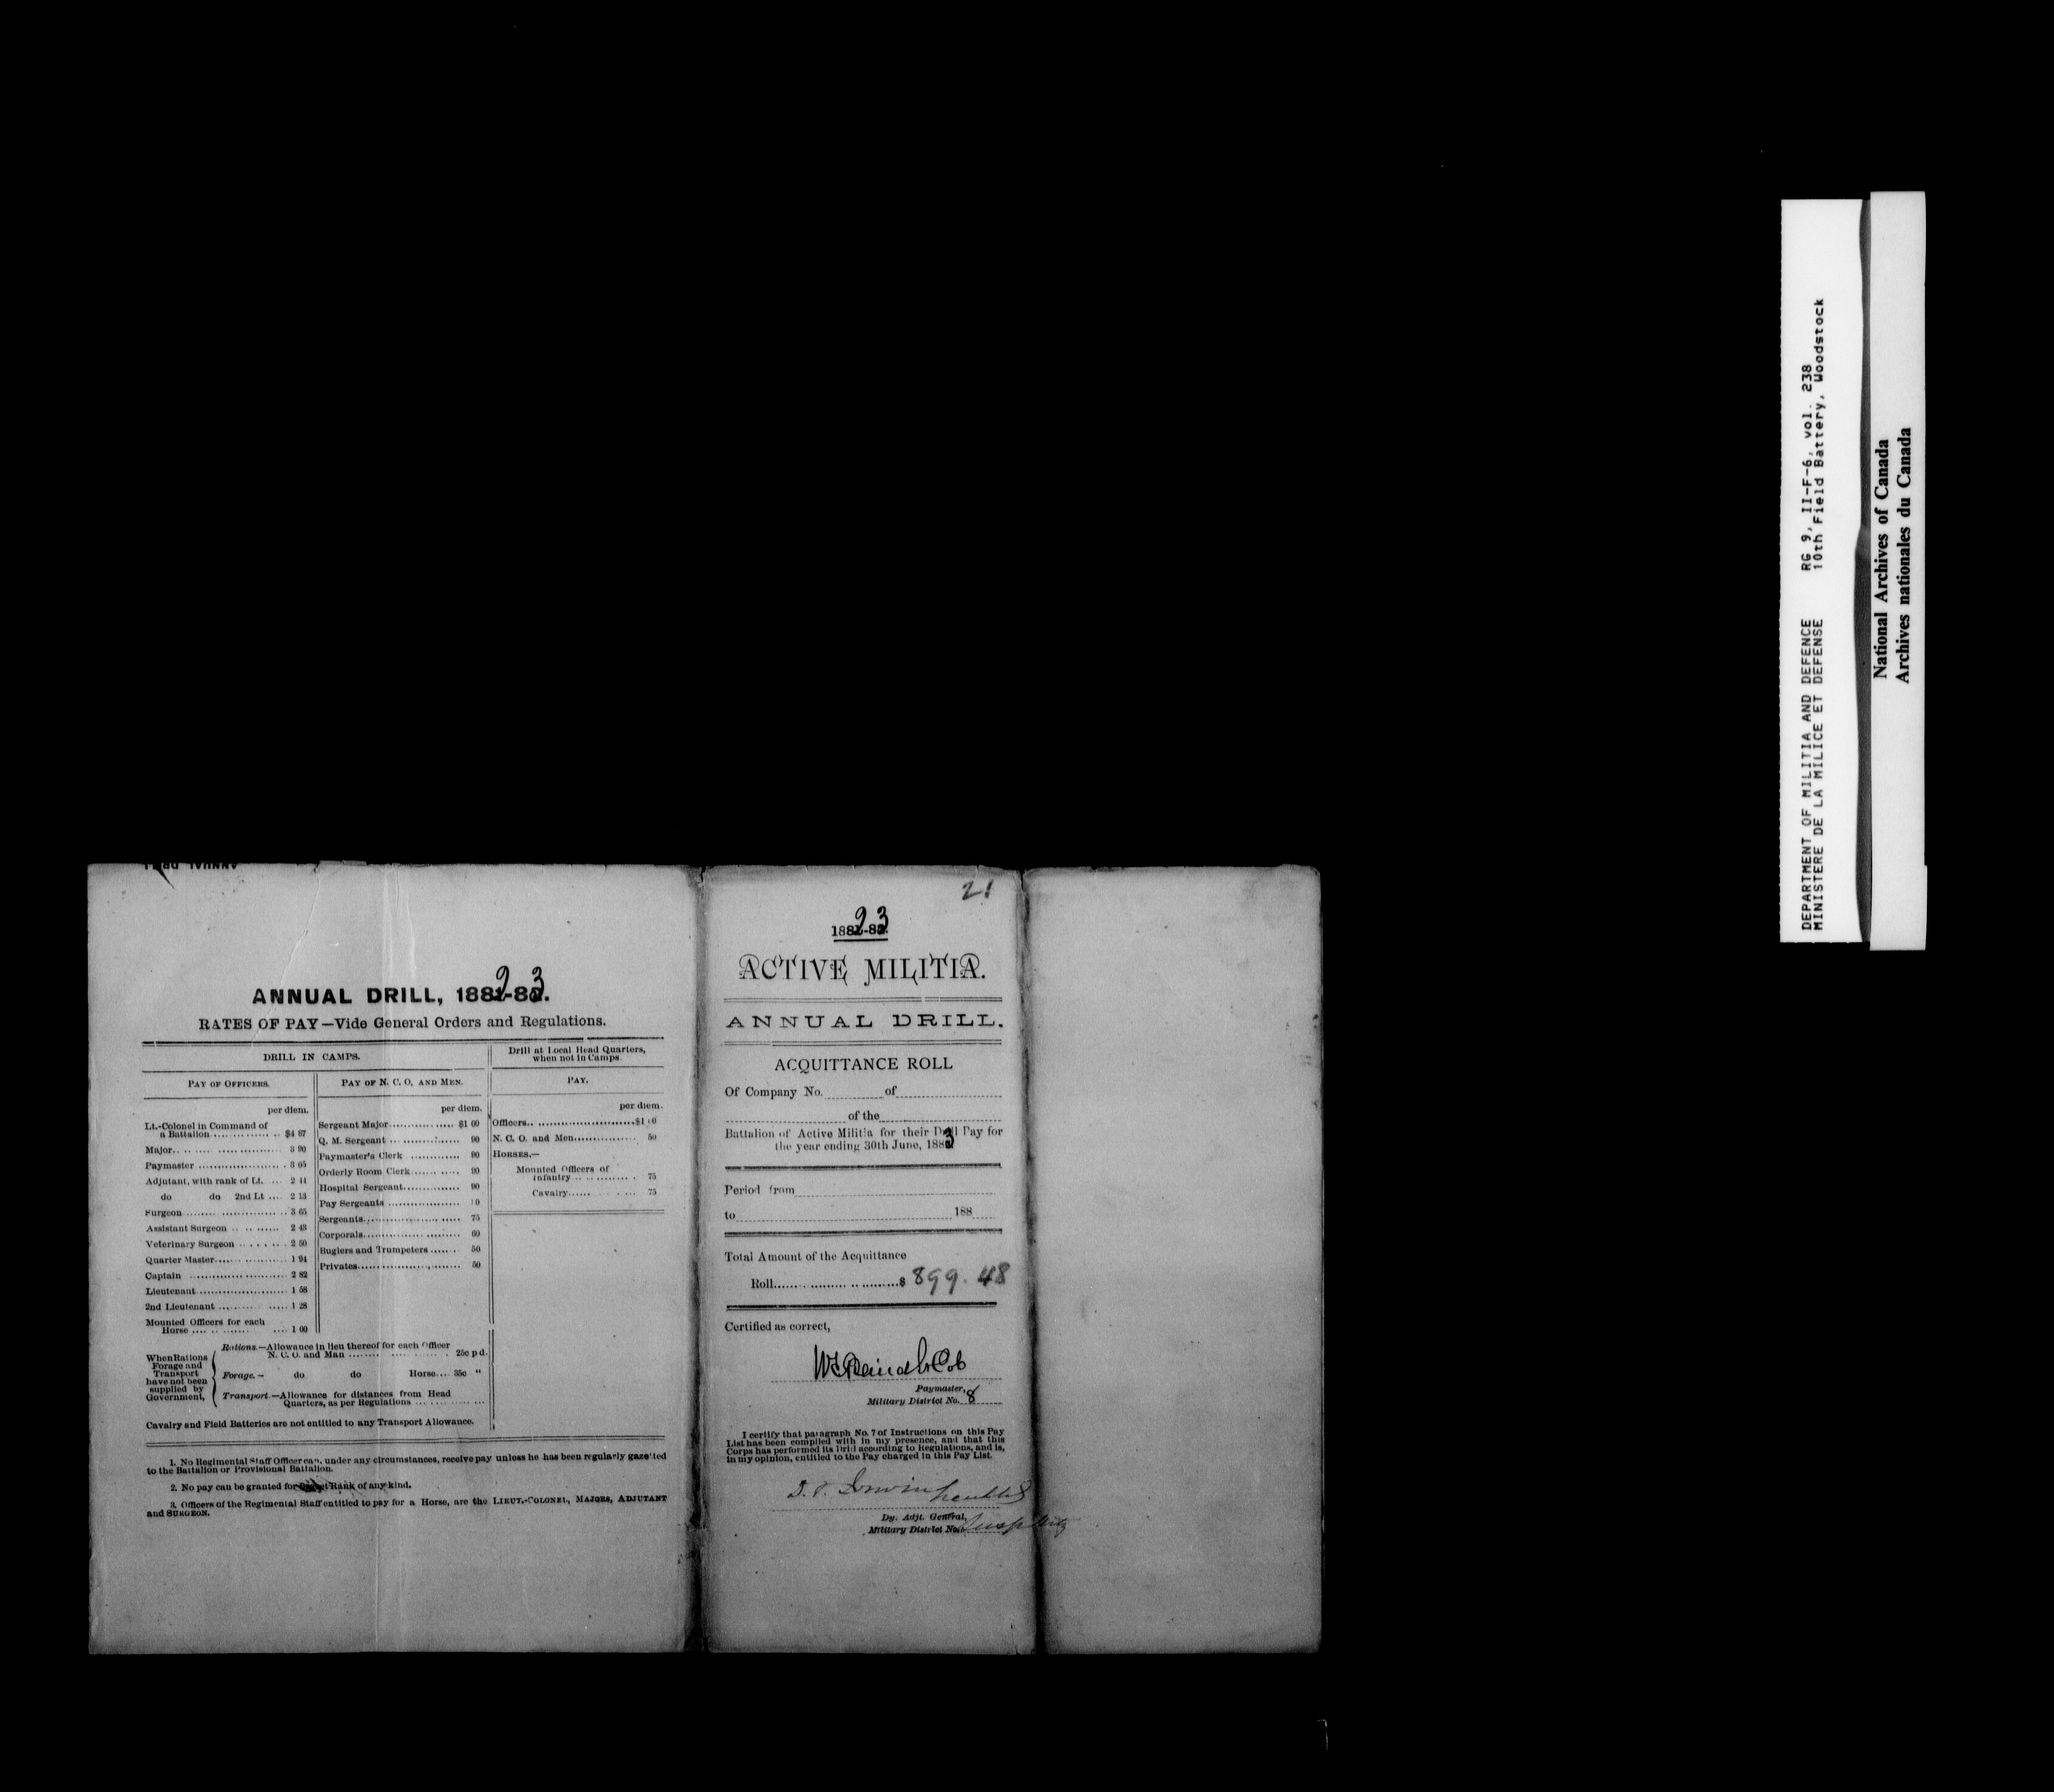 ANNUAL DRILL, 1882-83.
RATES OF PAY—Vide General Orders and Regulations.
DRILL IN CAMPS.
PAY OF OFFICERS.
per diem.
Lt.-Colonel in Command of
a Battalion $4 87
Major 3 90
Paymaster 3 05
Adjutant, with rank of Lt. 2 44
do do 2nd Lt 2 13
Surgeon 3 65
Assistant Surgeon 2 43
Veterinary Surgeon 2 50
Quarter Master 1 94
Captain 2 82
Lieutenant 1 58
2nd Lieutenant 1 28
Mounted Officers for each
Horse 1 00
PAY OF N. C. O. AND MEN.
per diem.
Sergeant Major $1 00
Q. M. Sergeant 90
Paymaster's Clerk 90
Orderly Room Clerk 90
Hospital Sergeant 90
Pay Sergeants
Sergeants 75
Corporals 60
Buglers and Trumpeters 50
Privates 50
Drill at Local Head Quarters,
when not in Camps
PAY.
per diem.
Officers $1 00
N. C. O. and Men 50
HORSES.—
Mounted Officers of
Infantry 75
Cavalry 75
When Rations
Forage and
Transport
have not been
supplied by
Government,
Rations.—Allowance in lieu thereof for each Officer
N. C. O. and Man 25c p d.
Forage.— do do Horse... 35c "
Transport.—Allowance for distances from Head
Quarters, as per Regulations
Cavalry and Field Batteries are not entitled to any Transport Allowance.
1. No Regimental Staff Officer can, under any circumstances, receive pay unless he has been regularly gazetted
to the Battalion or Provisional Battalion.
2. No pay can be granted for Rank of any kind.
3. Officers of the Regimental Staff entitled to pay for a Horse, are the LIEUT.-COLONEL, MAJORS, ADJUTANT
and SURGEON.
21
1882-83.
ACTIVE MILITIA.
ANNUAL DRILL.
ACQUITTANCE ROLL
Of Company No. of
of the
Battalion of Active Militia for their Drill Pay for
the year ending 30th June, 1883
Period from
to 188
Total Amount of the Acquittance
Roll $ 899.48
Certified as correct,
Paymaster,
Military District No. 8
I certify that paragraph No. 7 of Instructions on this Pay
List has been complied with in my presence, and that this
Corps has performed its Drill according to Regulations, and is,
in my opinion, entitled to the Pay charged in this Pay List.
Irwin
Dy. Adjt. General,
Military District No.
DEPARTMENT OF MILITIA AND DEFENCE RG 9, II-F-6, vol. 238
MINISTERE DE LA MILICE ET DEFENSE 10th Field Battery, Woodstock
National Archives of Canada
Archives nationales du Canada